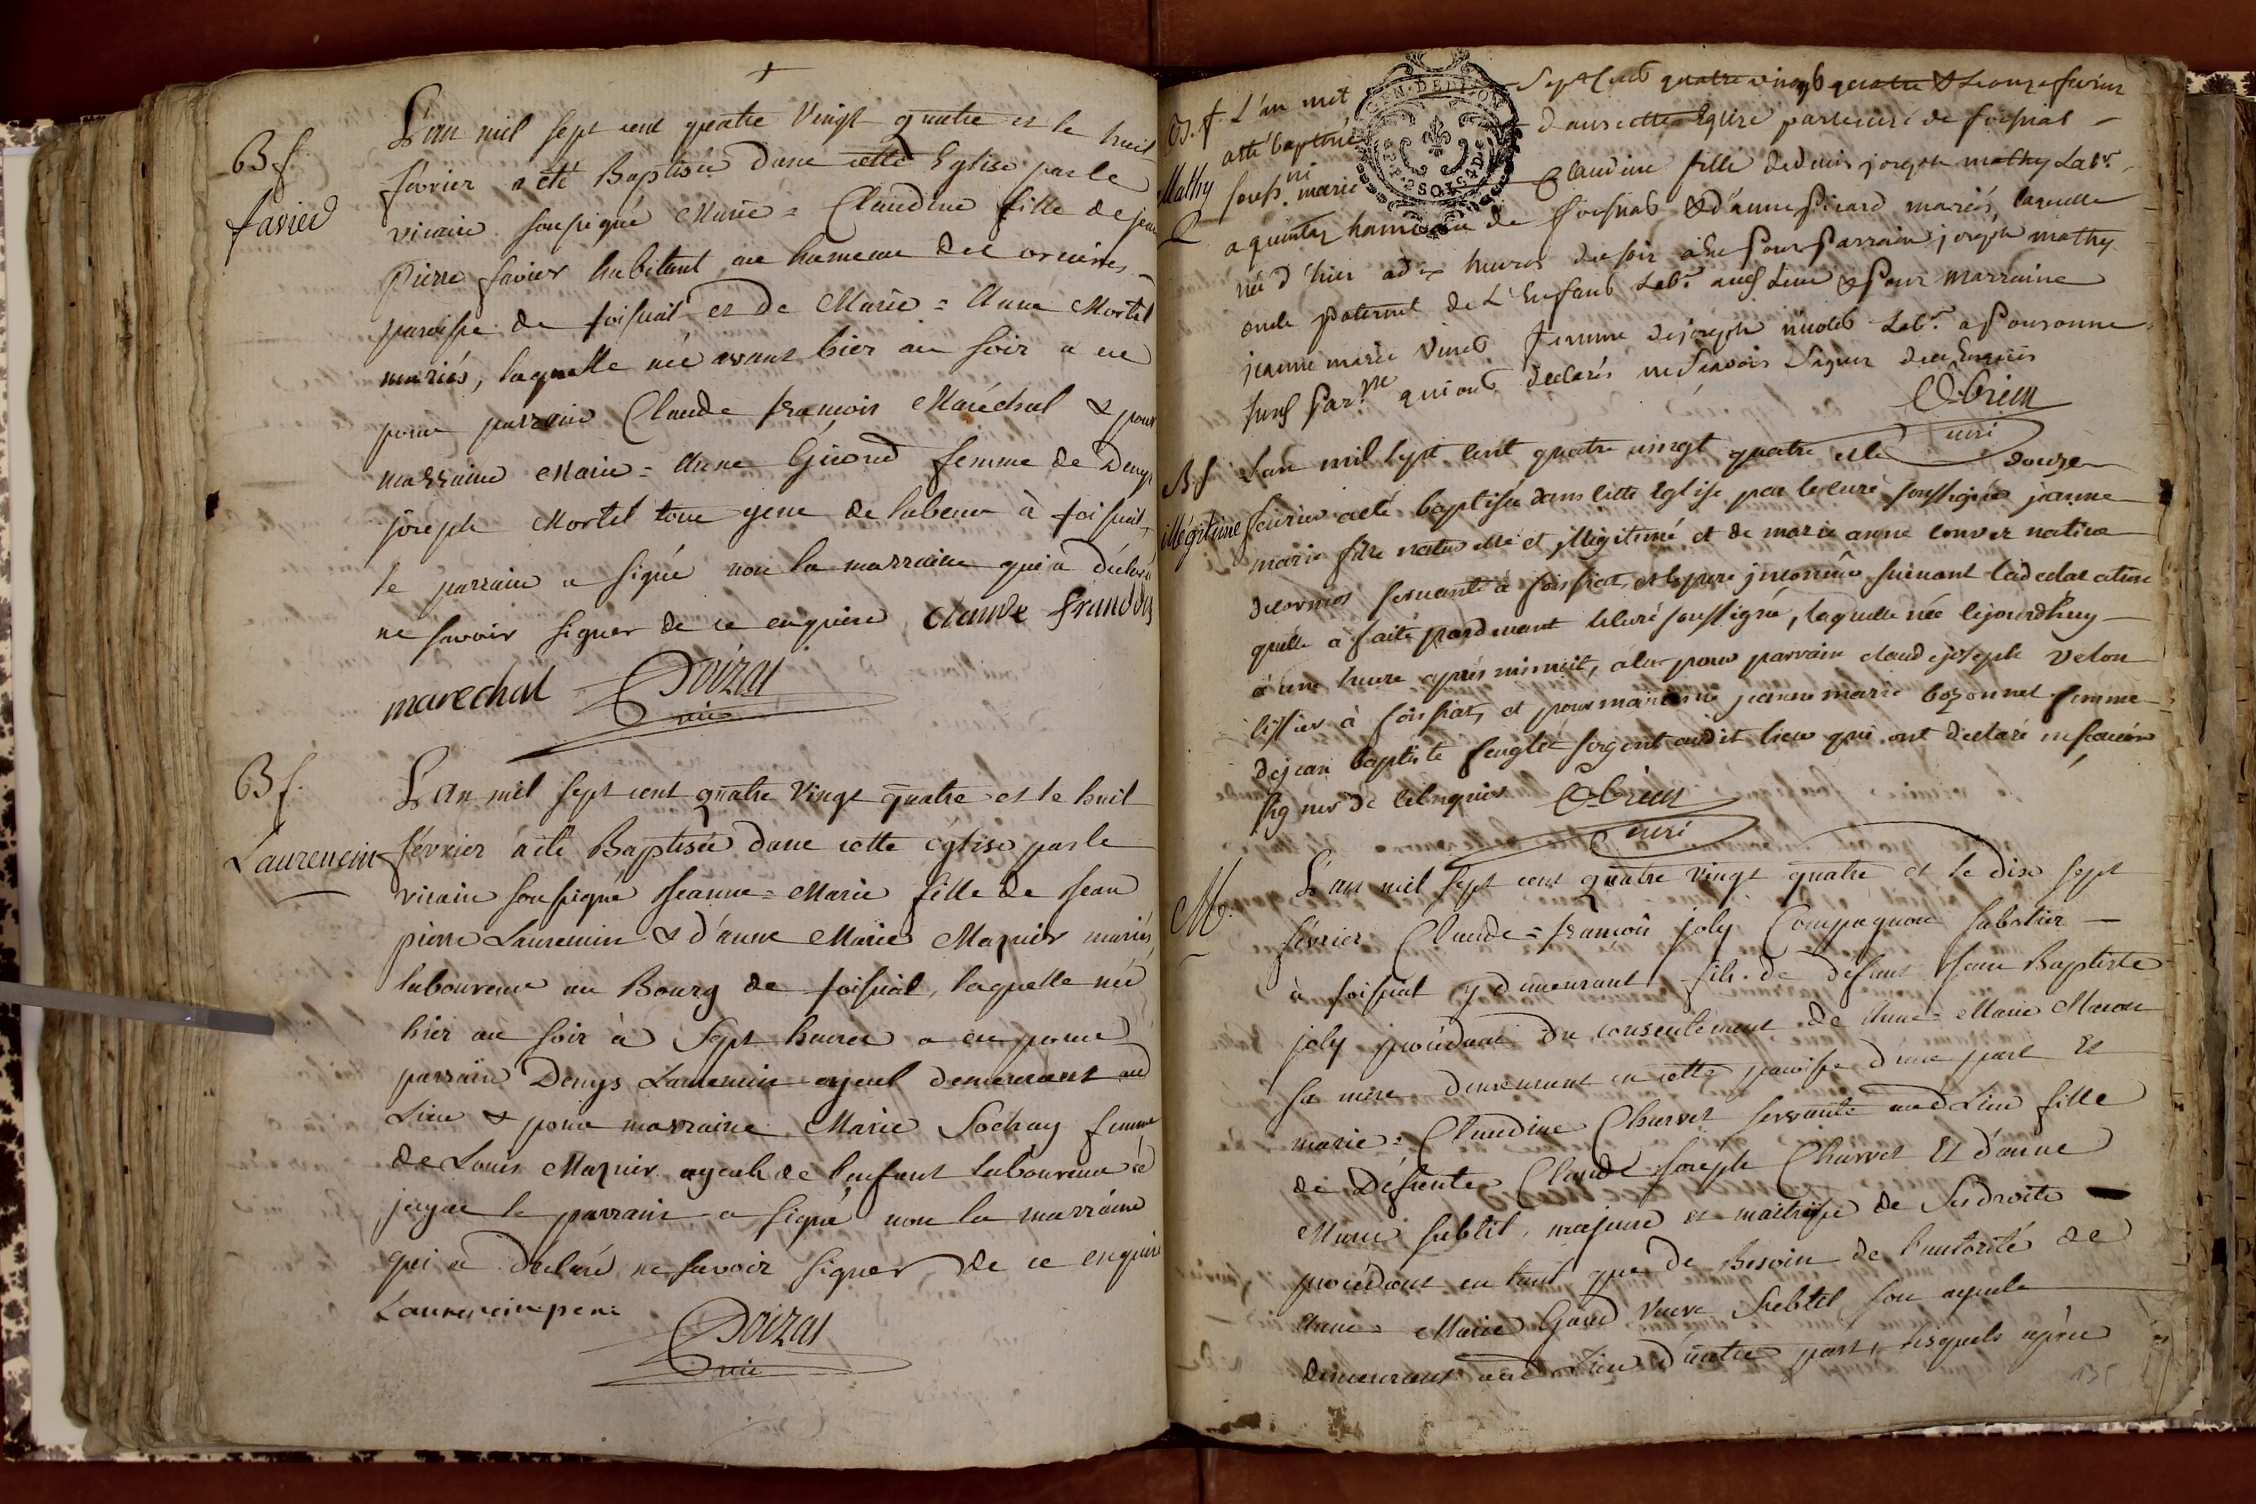 +
B f.
favier
L'an mil sept cent quatre vingt quatre et le huit
février a été Baptisée dans cette Eglise par le
vicaire soussigné Marie = Claudine fille de jean
pierre favier habitant au hameau des
paroisse de foissiat et de Marie = Anne Mortel
mariés, laquelle née avant hier au soir a eu
pour parrain Claude françois Maréchal & pour
marraine Marie = Anne Girord femme de Denys
joseph Mortel tous gens de labeur à foissiat,
le parrain a signé non la marraine qui a déclaré
ne savoir signer de ce enquise Claude françois
marechal Doizat
vic
B f.
Laurencin
L'an mil sept cent quatre vingt quatre et le huit
février a été Baptisée dans cette église par le
vicaire soussigné Jeanne = Marie fille de Jean
pierre Laurencin & d'anne Marie Maznier mariés,
laboureur au Bourg de foissiat, laquelle née
hier au soir à Sept heures a eu pour
parrain Denys Laurencin ayeul demeurant aud
Lieu & pour marraine Marie Sochay femme
de Louis Maznier ayeule de l'enfant laboureur à
jayac le parrain a signé non la marraine
qui a déclaré ne savoir signer de ce enquise
Laurencin pere Doizat
vic
B. f.
Mathy
L'an mil Sept Cent quatre vingt quatre & le onze fevrier
a été baptisée dans cette Eglise paroissiale de foissiat
souss. marie Claudine fille de denis joseph mathy Labr.
a quintaz hameau de foissiat & d'anne Picard mariés, laquelle
née d'hier a dix heures du soir a Eu Pour Parrain joseph mathy
oncle paternel de L'Enfant Labr. aud Lieu & Pour marraine
jeanne marie Vinet femme de joseph nicolet Labr. a Poisonne
susd parsse. qui ont declarés ne Scavoir Signer de ce Enquis
Obrien
curé
B. f
illégitime
L'an mil sept cent quatre vingt quatre et le douze
fevrier a été baptisée dans cette Eglise par le curé soussigné jeanne
marie fille naturelle et illégitime et de marie anne convers native
servante à foissiat, et le pere inconnu suivant la declaration
quelle a faite pardevant le curé soussigné, laquelle née cejourdhuy
à une heure après minuit, a eu pour parrain claude joseph velon
tissier à foissiat, et pour marraine jeanne marie bozonnet femme
de jean baptiste feuglet sergent audit lieu qui ont declaré ne scavoir
signer de ce enquis Obrien
curé
M.
L'an mil sept cent quatre vingt quatre et le dix sept
février Claude = françois joly Compagnon Sabotier
à foissiat y demeurant fils de défunt Jean Baptiste
joly procédant du consentement de Anne = Marie
sa mere demeurant en cette paroisse d'une part Et
marie = Claudine Charvet servante aud Lieu fille
de Défunts Claude Joseph Charvet Et d'anne
Marie Subtil, majeure et maitresse de Ses droits
procédant en tant que de Besoin de l'autorité de
Anne = Marie Gard veuve Subtil son ayeule
demeurant aud Lieu d'autre part, lesquels après
135